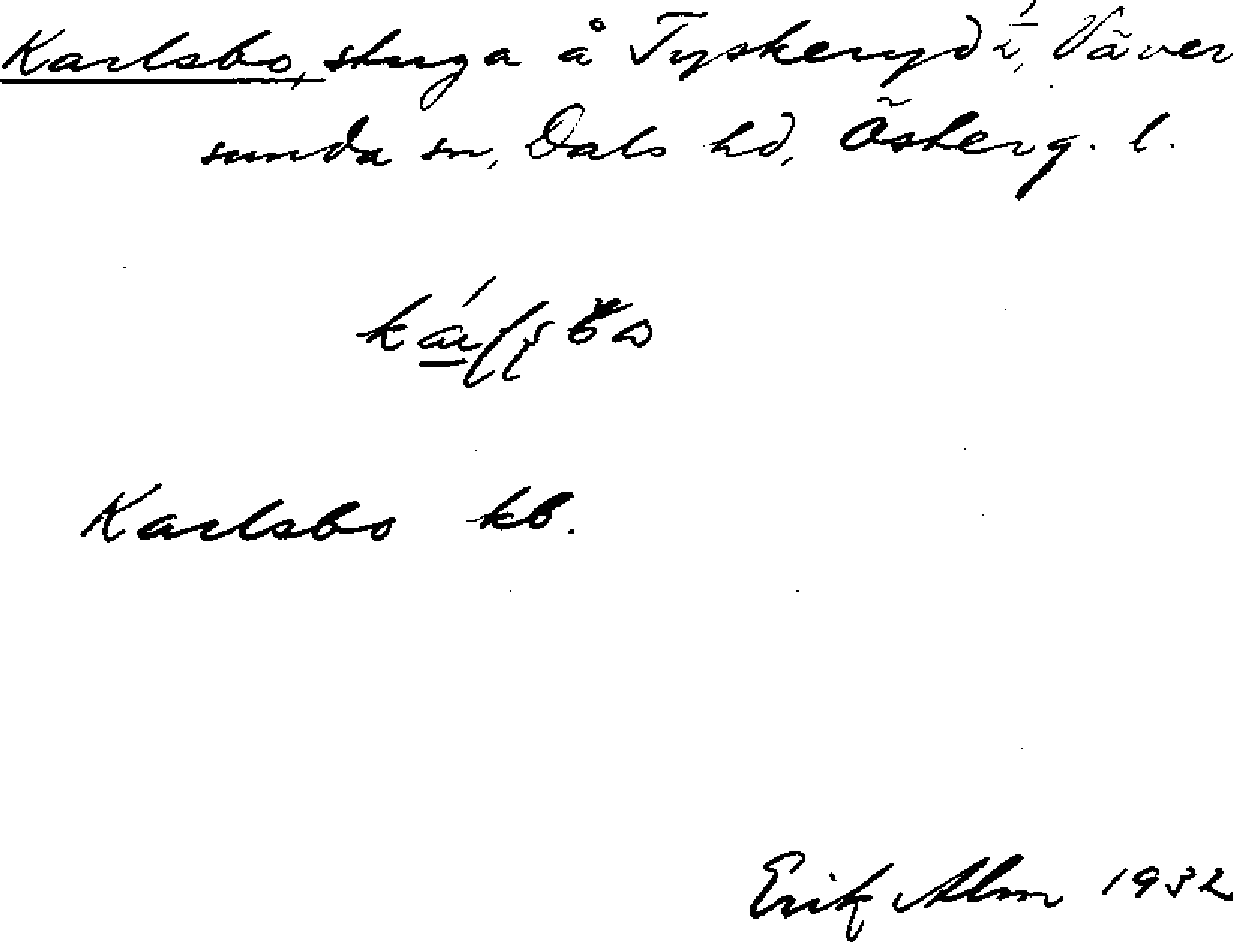 Karlsbo, stuga å Tyskeryd 1/2, Väver
sunda sn, Dals hd, Österg. l.
Karlsbo kb.
Erik Alm 1932